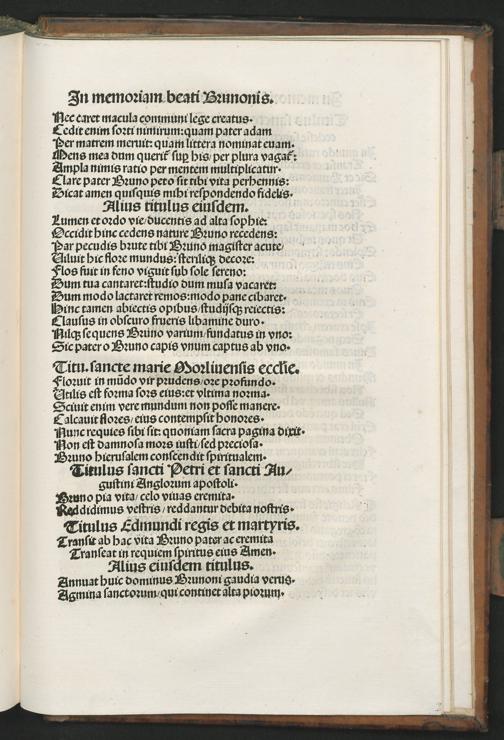 In memoriam beati Brunonis.
Nec caret macula communi lege creatus.
Cedit enim sorti nimirum: quam pater adam
Per matrem meruit: quam littera nominat euam.
Mens mea dum querit sup his/ per plura vagat:
Ampla nimis ratio per mentem multiplicatur.
Clare pater Bruno peto sit tibi vita perhennis:
Dicat amen quisquis mihi respondendo fidelis.
Alius titulus eiusdem.
Lumen et ordo vie/ ducentis ad alta sophie:
Occidit hinc cedens nature Bruno recedens:
Par pecudis brute tibi Bruno magister acute/
Viluit hic flore mundus: sterilique decore:
Flos fuit in feno viguit sub sole sereno:
Dum tua cantaret: studio dum musa vacaret:
Dum modo lactaret remos: modo pane cibaret.
Hinc tamen abiectis opibus/ studijsque reiectis:
Clausus in obscuro fruens libamine duro.
Nilque sequens Bruno varium/ fundatus in vno:
Sic pater o Bruno capis vnum captus ab vno.
Titu. sancte marie Morliuensis ecclie.
Floruit in mūdo vir prudens/ ore profundo.
Utilis est forma sors eius: et vltima norma.
Sciuit enim vere mundum non posse manere.
Calcauit flores/ eius contempsit honores.
Nunc requies sibi sit: quoniam sacra pagina dixit.
Non est damnosa mors iusti/ sed preciosa.
Bruno hierusalem conscendit spiritualem.
Titulus sancti Petri et sancti Au/
gustini Anglorum apostoli.
Bruno pia vita/ celo viuas eremita.
Reddidimus vestris/ reddantur debita nostris.
Titulus Edmundi regis et martyris.
Transit ab hac vita Bruno pater ac eremita
Transeat in requiem spiritus eius Amen.
Alius eiusdem titulus.
Annuat huic dominus Brunoni gaudia verus.
Agmina sanctorum/ qui continet alta piorum.